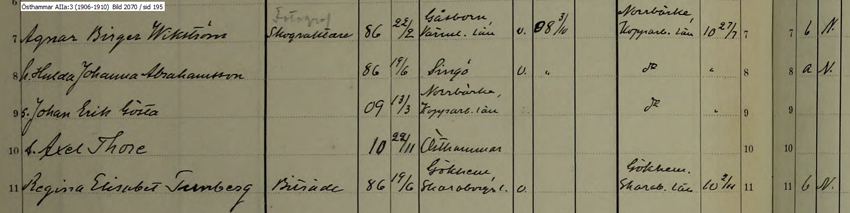 Östhammar AIIa:3 (1906-1910) Bild 2070 / sid 195
Fotograf Gåsborn, Norrbärke,
7 Agnar Birger Wikström Skograktare 86 22/2 Värml. län v. 08 3/11 Kopparb. län 10 27/7 7 7 b N.
8 h. Hulda Johanna Abrahamsson 86 19/6 Singö v. " do " 8 8 a N.
Norrbärke,
9 s. Johan Erik Gösta 09 13/3 Kopparb. län do " 9 9
10 s. Axel Thore 10 22/11 Östhammar 10 10
Gökhem, Gökhem.
11 Regina Elisabet Turnberg Biträde 86 19/6 Skaraborgs l. v. Skarab. län 10 2/11 11 11 b N.